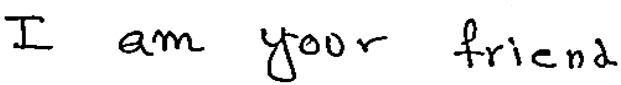 I am your friend